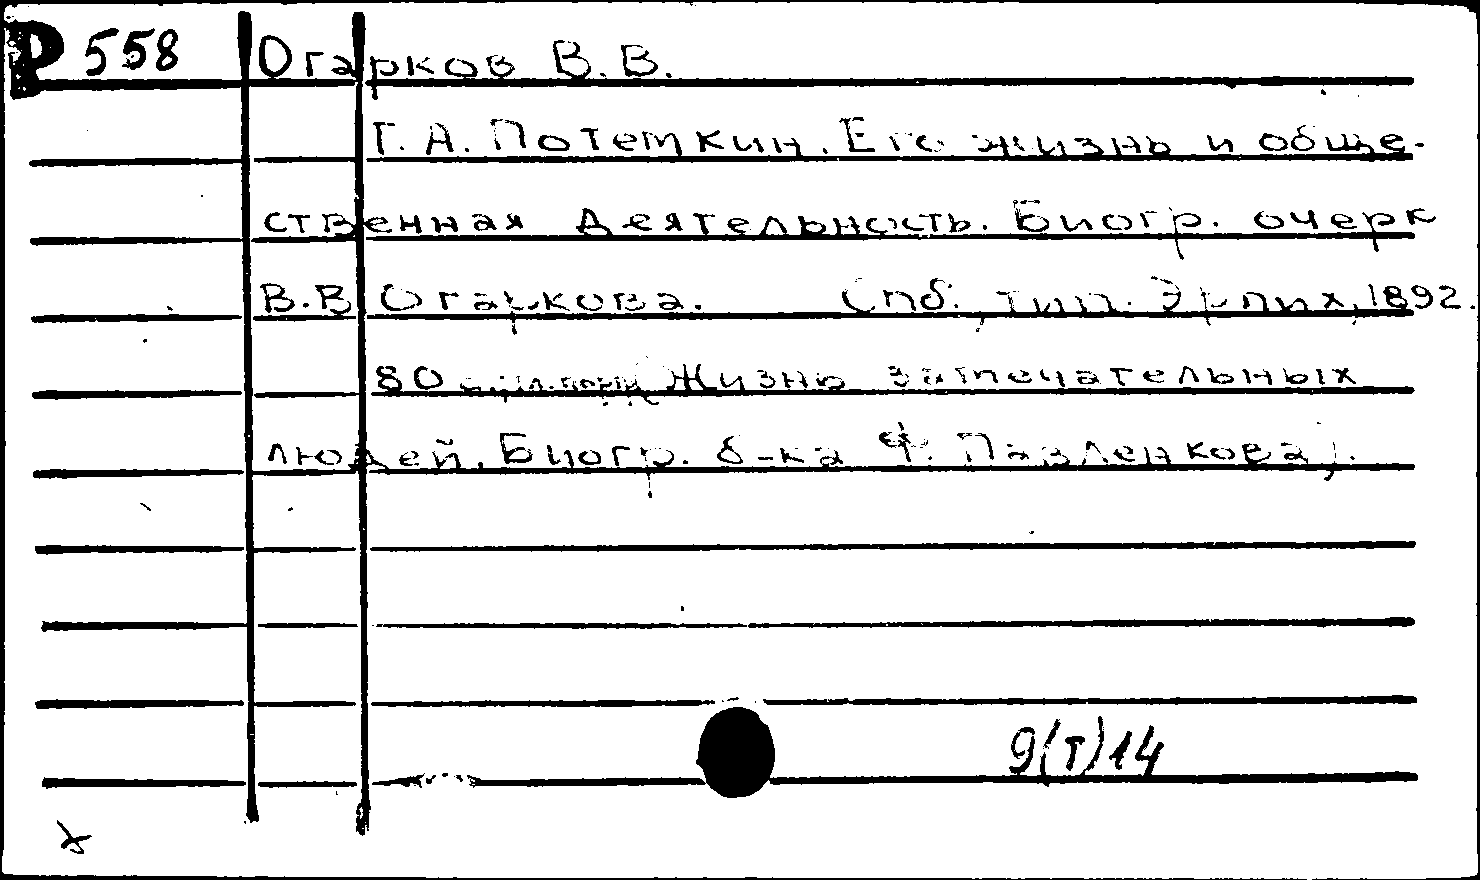 Р 558 Огарков В. В.
Г. А. Потемкин. Его жизнь и обще-
ственная деятельность. Биогр. очерк
В. В. Огаркова. Спб., тип. Эрлих, 1892.
80 с., 1 л. портр. (Жизнь замечательных
людей. Биогр. б-ка Ф. Павленкова).
9(Т)14